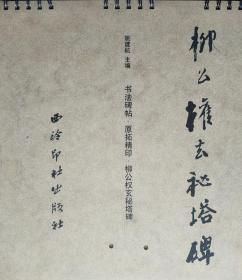 柳公权玄秘塔碑
施建航 主编
书法碑帖·原拓精印·柳公权玄秘塔碑
西泠印社出版社